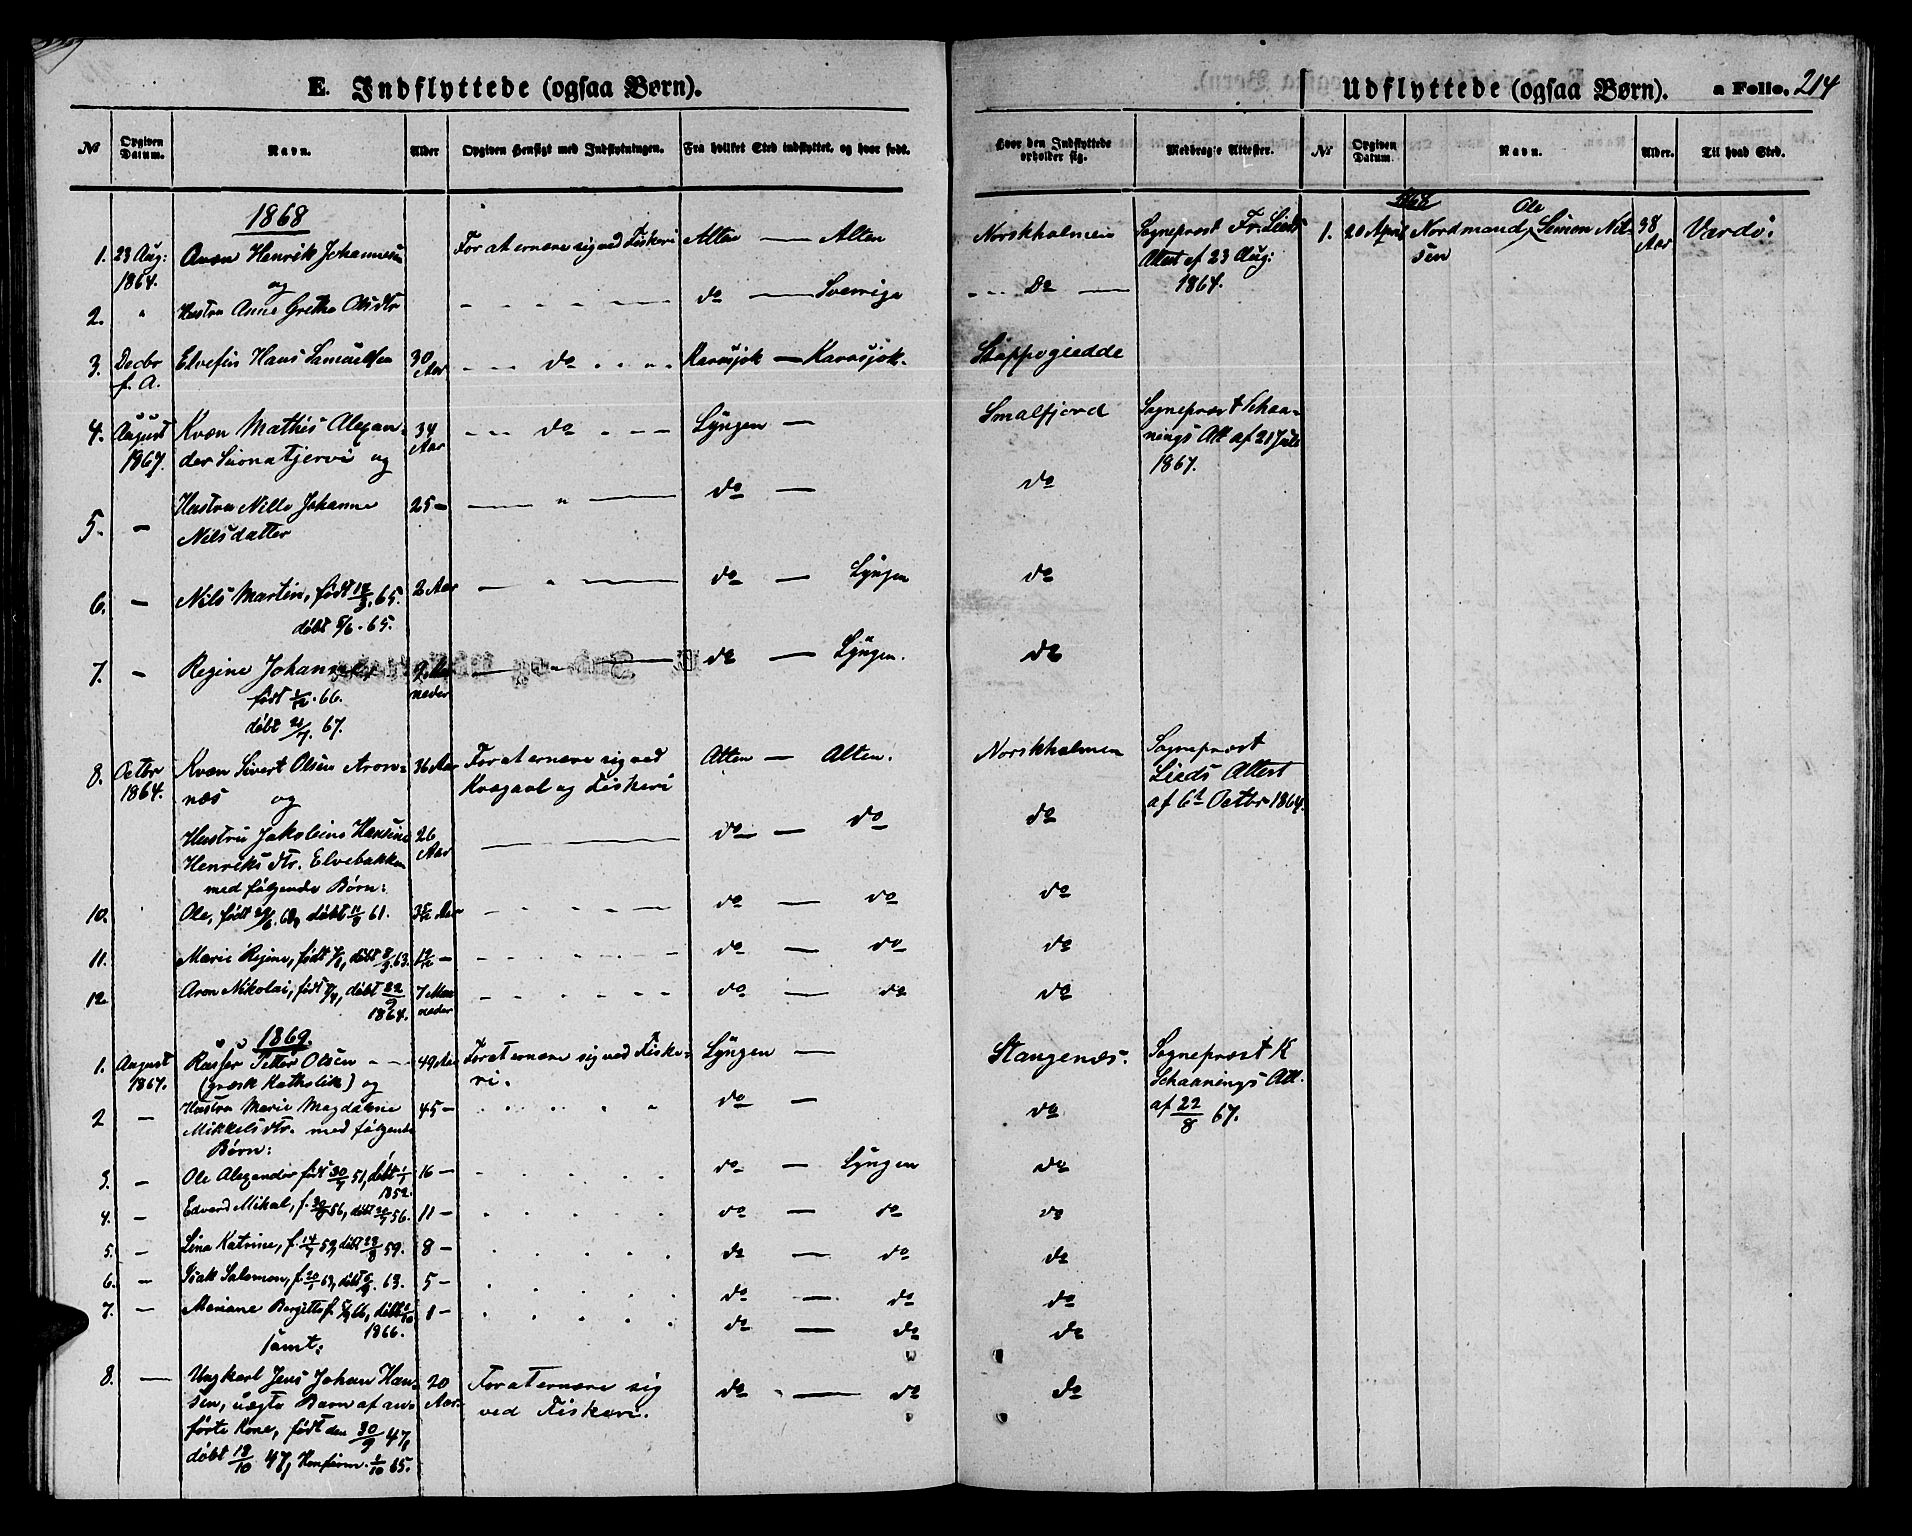 E. Indflyttede (ogsaa Børn).
Udflyttede (ogsaa Børn). a Folio. 214
No Opgiven Datum. Navn. Alder Opgiven Hensigt med Indflytningen. Fra hvilket Sted indflyttet, og hvor født. Hvor den Indflyttede opholder sig. Medbragte Attester. No Opgiven Datum. Navn. Alder. Til hvad Sted.
1868
1868
1. 23 Aug: 1864. Henrik Johannesen og For at ernære sig ved Fiskeri Alten — Alten Norskholmen Sogneprest Fr. Lieds Attest af 23 Aug: 1864.
1. 20 April Nordmand Ole Simon Nilsen 38 Aar Vardö.
2. " Hustru Anne Grethe Olsdtr do — Sverrige Do
3. Decbr f. A. Elvefin Hans Samuelsen 30 Aar do Karasjok — Karasjok.
4. August 1867. Kvæn Mathis Alexander og 34 Aar do Lyngen — Smalfjord Sogneprest Schaanings Att af 21 Juli 1867.
5. — Hustru Nille Johanne Nilsdatter 25 — " do — do
6. — Nils Martin, født 65. døbt 5/6. 65. 2 Aar " do — Lyngen do
7. — Regine født 1/12. 66. døbt 21/7. 67. 9 Maaneder do — Lyngen. do
8. Octbr 1864. Kvæn Sivert Olsen Aronnæs og 36 Aar For at ernære sig ved Kvægavl og Fiskeri Alten — Alten. Norskholmen Sogneprest Lieds Attest af 6te Octbr 1864.
Hustru Jakobine Hansine Henriksdtr. Elvebakken 26 Aar do — do do
med følgende Børn:
10. Ole, født døbt 61. do — do do
11. Marie Regine, født døbt 63. do — do do
12. Aron Nikolai, født døbt 22/9 1864. 7 Maaneder do — do do
1869.
1. August 1867. Russer Petter Olsen (græsk Katholik) og 49 Aar For at ernære sig ved Fiskeri. Lyngen — Stangenæs. Sogneprest K Schaanings Att. af 22/8 67.
2 — Hustru Marie Magdalene Mikkelsdtr. med følgende Børn: 45 — do — do
3. — Ole Alexander født 51, døbt 1/1 1852. 16 — do — Lyngen do
4. — Edvard Mikal, f. 56, døbt 56. 11 — do — do do
5. — Lina Katrine, f. 14/7 59, døbt 59. 8 — do — do do
6. — Isak Salomon, f. 63, døbt 63. 5 — do — do do
7. — Mariane Bergitte f. 66, døbt 1866. 1 — do — do do
samt:
8. — Ungkarl Jens Johan Hansen, uægte Barn af anførte Kone, født den 30/9 47, døbt 18/10 47, Konfirm. 1/10 65. 20 Aar. For at ernære sig ved Fiskeri. do — do do